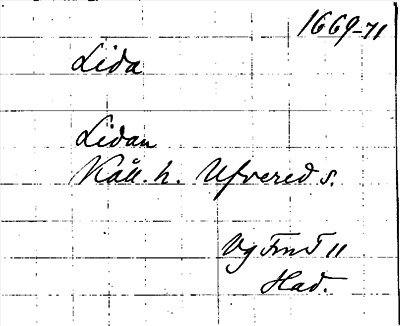 1669-71
Lida
Lidan
Kåll. h. Ufvered s.
Vg Fmt II
Had.